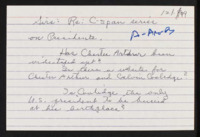 10/99
Sirs: Re: C-Span series
on Presidents.
A-Ans
Has Chester Arthur been
vindicated yet?
Chester Arthur and Calvin Coolidge?
Is Coolidge the only
U.S. president to be buried
at his birthplace?